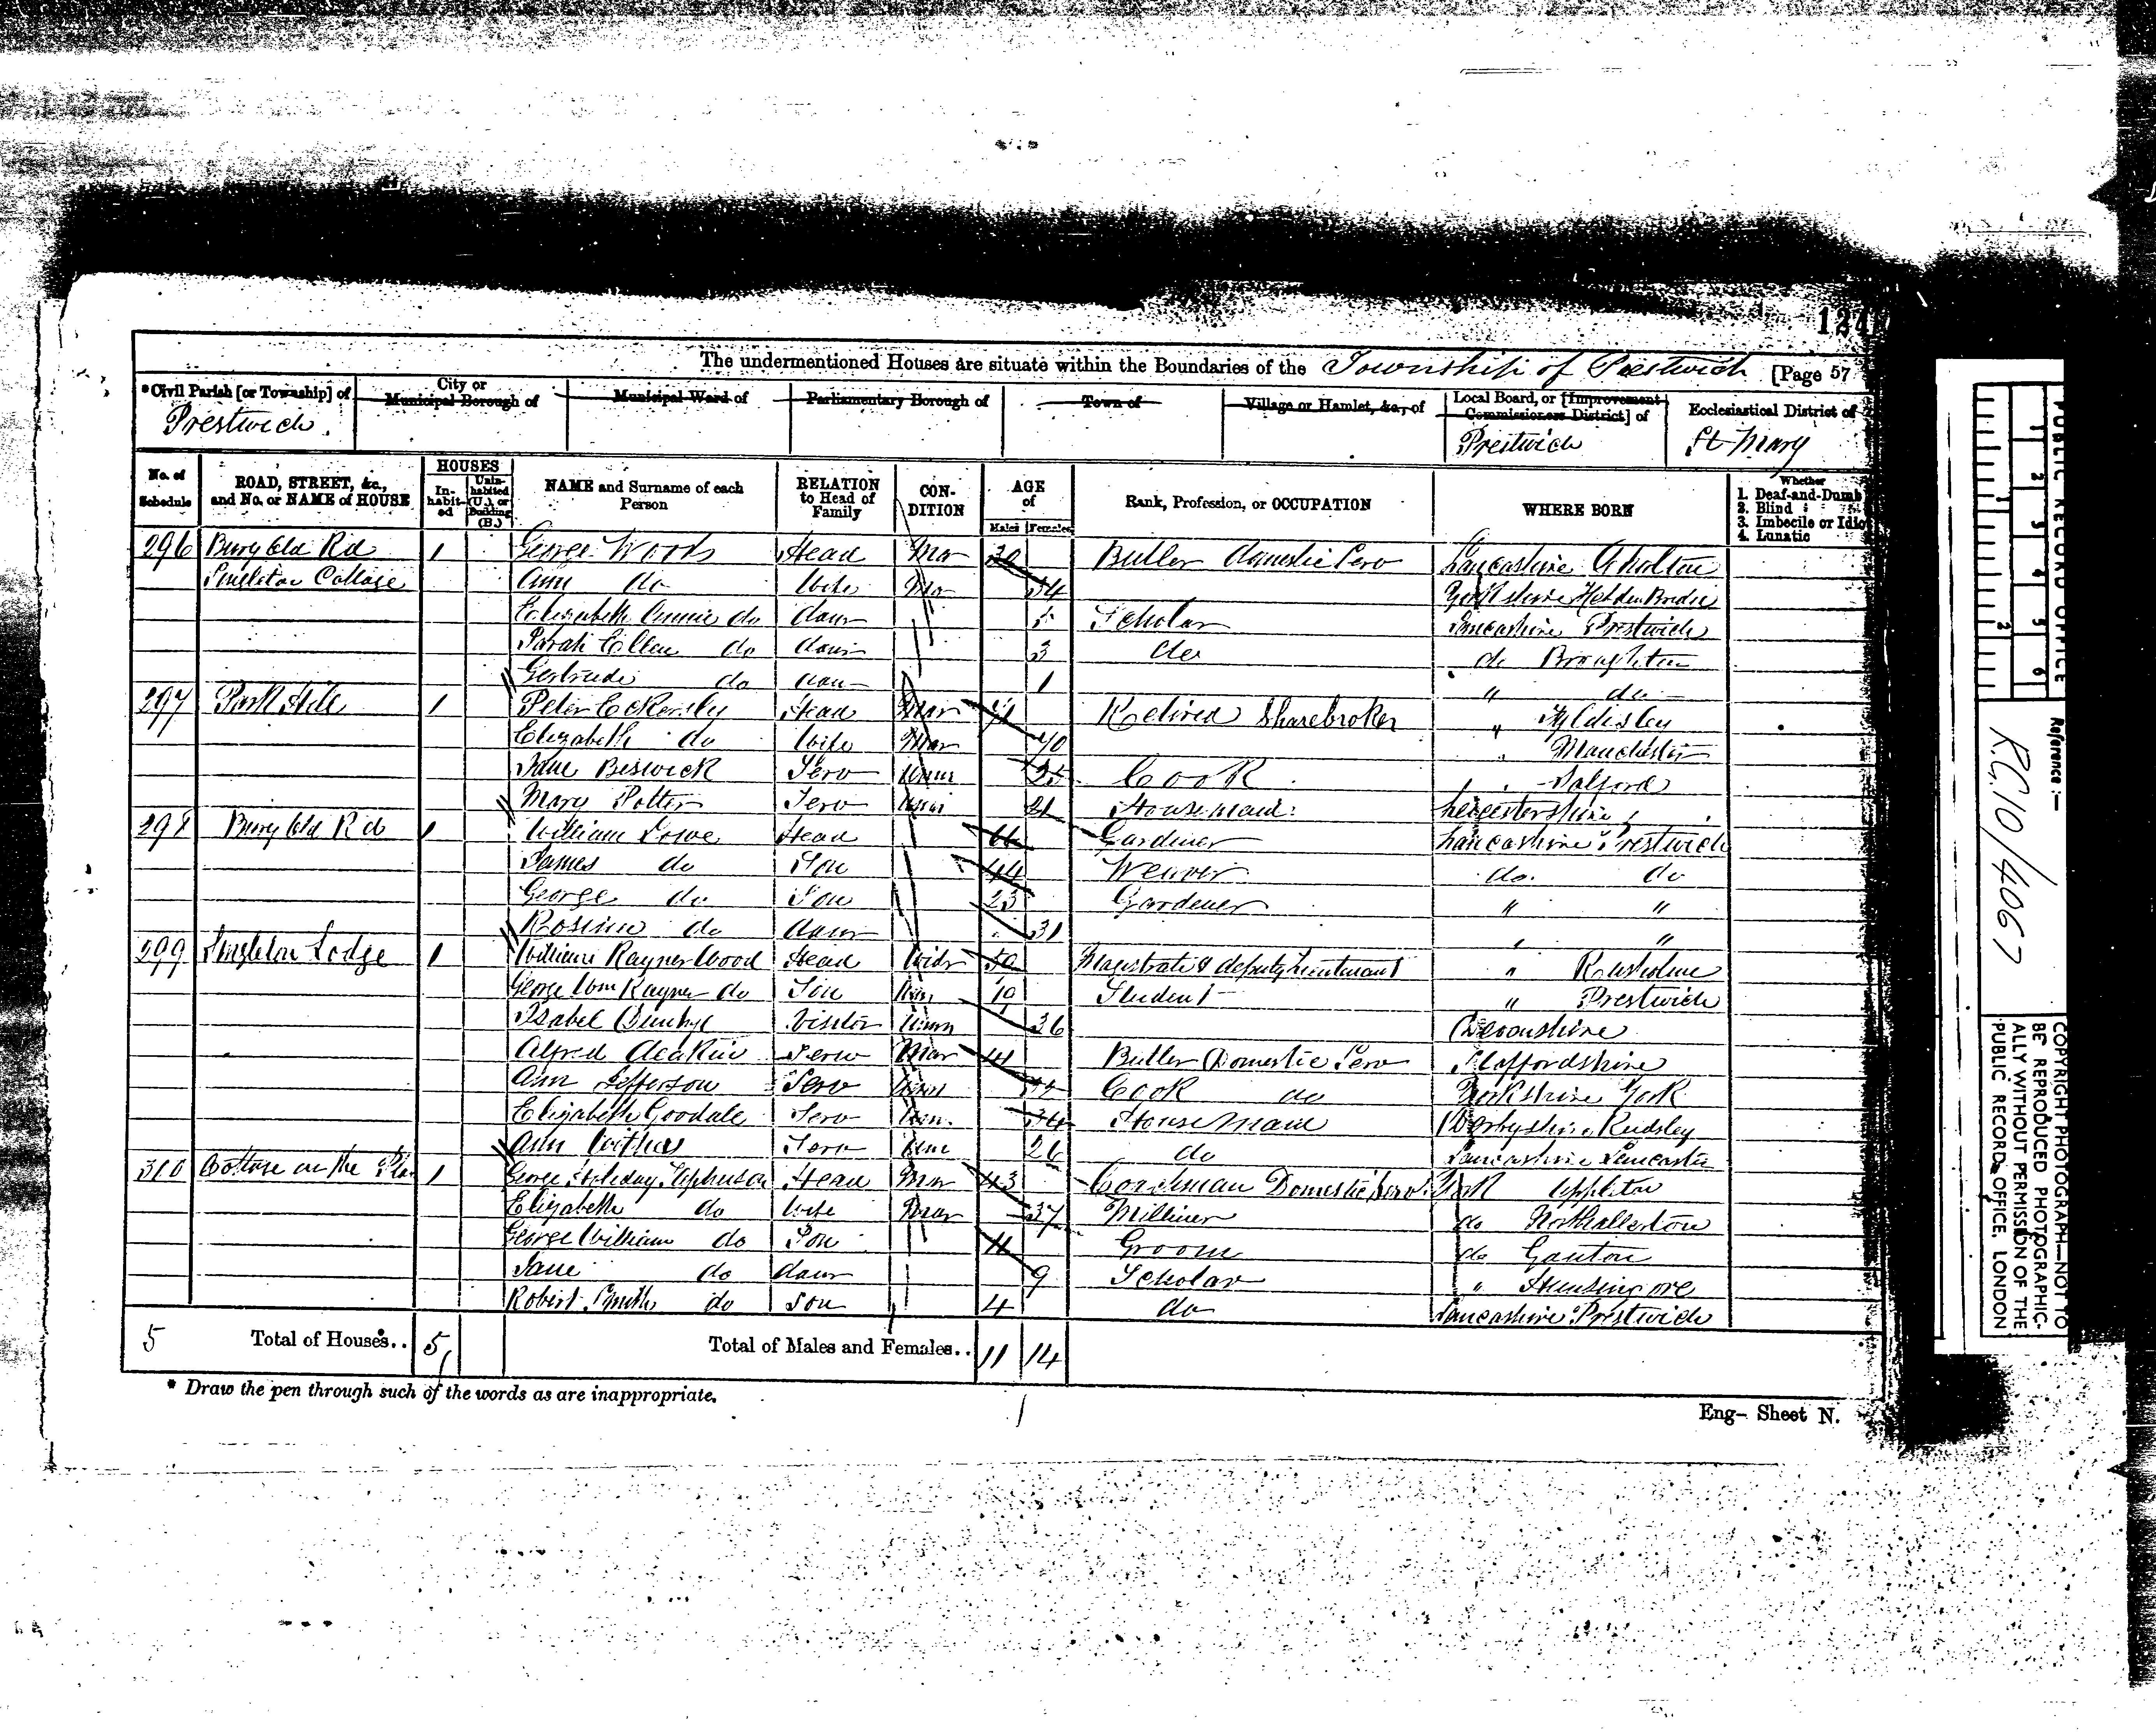 124
The undermentioned Houses are situate within the Boundaries of the Township of Prestwich [Page 57
*Civil Parish [or Township] of
Prestwich
City or Municipal Borough of
Municipal Ward of
Parliamentary Borough of
Town of
Village or Hamlet, &c., of
Local Board, or [Improvement Commissioners District] of
Prestwich
Ecclesiastical District of
St Mary
No. of Schedule
ROAD, STREET, &c., and No. or NAME of HOUSE
HOUSES
In-habit-ed
Unin-habited (U.), or Building (B.)
NAME and Surname of each Person
RELATION to Head of Family
CON-DITION
AGE of
Males
Females
Rank, Profession, or OCCUPATION
WHERE BORN
Whether
1. Deaf-and-Dumb
2. Blind
3. Imbecile or Idiot
4. Lunatic
296 Bury Old Rd 1 George Woods Head Mar Butler Domestic Serv Lancashire
Singleton Cottage Ann do Wife Mar 34
Elizabeth Annie do daur 5 Scholar Lancashire Prestwich
Sarah Ellen do daur 3 do do Broughton
Gertrude do daur 1 " do
297 Park Hill 1 Peter Eckersley Head Mar Retired Sharebroker " Tyldesley
Elizabeth do Wife Mar 70 Manchester
Jane Beswick Serv Unm 25 Cook Salford
Mary Potter Serv Unm 21 Housemaid Leicestershire
298 Bury Old Rd 1 William Lowe Head 66 Gardener Lancashire Prestwich
James do Son 44 Weaver do do
George do Son 23 Gardener " "
do daur 31 "
299 Singleton Lodge 1 William Rayner Wood Head Widr Magistrate & deputy Lieutenant " Rusholme
George Wm Rayner do Son Unm 19 Student " Prestwich
Isabel Visitor Unm 36 Devonshire
Alfred Deakin Serv Mar 41 Butler Domestic Serv Staffordshire
Ann Jefferson Serv Unm Cook do Yorkshire York
Elizabeth Goodale Serv Unm 34 House Maid Derbyshire
Ann Serv Unm 26 do Lancashire Lancaster
310 Cottage on the 1 George Holeday Stephenson Head Mar 43 Coachman Domestic Serv York Appleton
Elizabeth do Wife Mar 37 Milliner do Northallerton
George William do Son 11 Groom do Ganton
Jane do daur 9 Scholar " Hunsingore
Robert Smith do Son 4 do Lancashire Prestwich
5 Total of Houses.. 5 Total of Males and Females.. 11 14
* Draw the pen through such of the words as are inappropriate.
Eng- Sheet N.
PUBLIC RECORD OFFICE
1 2 3 4 5 6
1 2
Reference :—
R.G. 10/4067
COPYRIGHT PHOTOGRAPH—NOT TO
BE REPRODUCED PHOTOGRAPHIC-
ALLY WITHOUT PERMISSION OF THE
PUBLIC RECORD OFFICE, LONDON